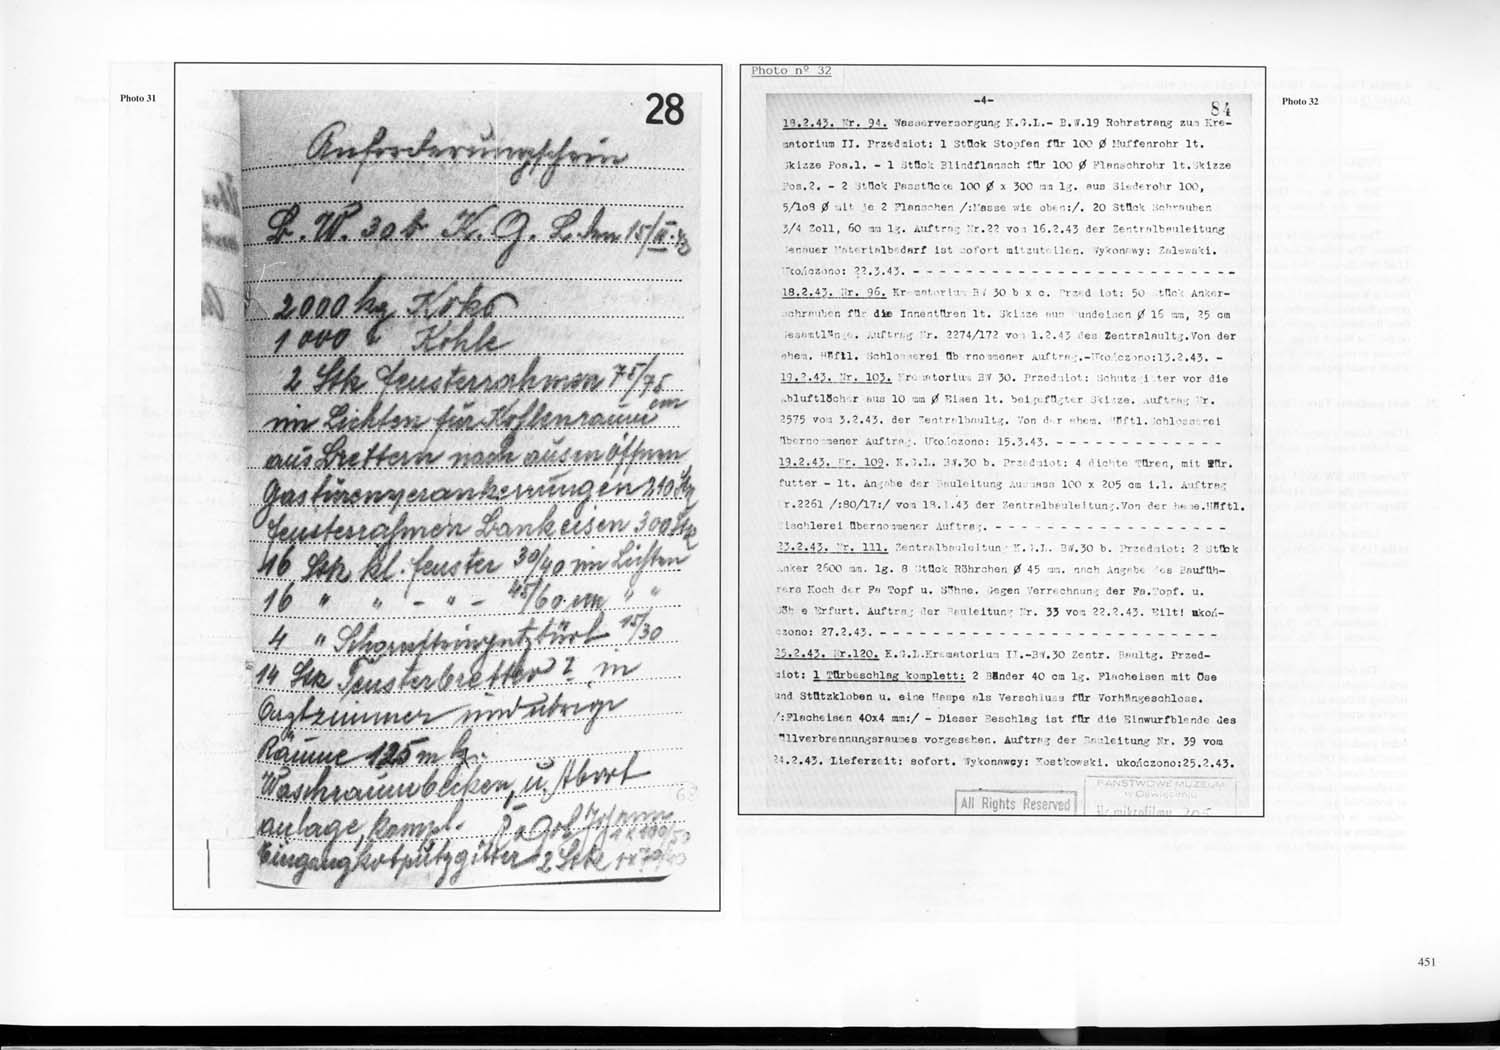 Photo 31
28
Anforderungschein
B. W. 30 b K. G. L. den 15/II. 43
2000 kg Koks
1000 " Kohle
2 Stk Fensterrahmen 75/75
im Lichten für Kohlenraum cm
aus Brettern nach aussen öffnen
Gastürenverankerungen 210 Stk
Fensterrahmen Bankeisen 300 Stk
16 Stk kl. Fenster 30/40 im Lichten
16 " " - " - 45/60 cm " "
4 " 15/30
14 Stk Fensterbretter 2 in
Arztzimmer und übrige
Räume 125 m lg.
Waschraumbecken, u. Abort
anlage, kompl.
2 Stk
Photo nº 32
-4-
84
18.2.43. Nr. 94. Wasserversorgung K.G.L.- B.W.19 Rohrstrang zum Kre-
matorium II. Przedmiot: 1 Stück Stopfen für 100 Ø Muffenrohr lt.
Skizze Pos.1. - 1 Stück Blindflansch für 100 Ø Flanschrohr lt.Skizze
Pos.2. - 2 Stück Passtücke 100 Ø x 300 mm lg. aus Siederohr 100,
5/108 Ø mit je 2 Flanschen /:Masse wie oben:/. 20 Stück Schrauben
3/4 Zoll, 60 mm lg. Auftrag Nr.22 vom 16.2.43 der Zentralbauleitung
Genauer Materialbedarf ist sofort mitzuteilen. Wykonawcy: Zalewski.
Ukończono: 22.3.43. - - - - - - - - - - - - - - - - - - - - - - - -
18.2.43. Nr. 96. Krematorium BW 30 b x c. Przedmiot: 50 Stück Anker-
schrauben für die Innentüren lt. Skizze aus Rundeisen Ø 16 mm, 25 cm
Gesamtlänge. Auftrag Nr. 2274/172 vom 1.2.43 des Zentralbaultg.Von der
ehem. Häftl. Schlosserei übernommener Auftrag.-Ukończono:13.2.43. -
19.2.43. Nr. 103. Krematorium BW 30. Przedmiot: Schutzgitter vor die
Abluftlöcher aus 10 mm Ø Eisen lt. beigefügter Skizze. Auftrag Nr.
2575 vom 3.2.43. der Zentralbaultg. Von der ehem. Häftl.Schlosserei
übernommener Auftrag. Ukończono: 15.3.43. - - - - - - - - - - - - -
19.2.43. Nr. 109. K.G.L. BW.30 b. Przedmiot: 4 dichte Türen, mit Tür.
futter - lt. Angabe der Bauleitung Ausmass 100 x 205 cm i.l. Auftrag
Nr.2261 /:80/17:/ vom 18.1.43 der Zentralbauleitung.Von der heme.Häftl.
Tischlerei übernommener Auftrag. - - - - - - - - - - - - - - - - -
23.2.43. Nr. 111. Zentralbauleitung K.G.L. BW.30 b. Przedmiot: 2 Stück
Anker 2600 mm. lg. 8 Stück Röhrchen Ø 45 mm. nach Angabe des Baufüh-
rers Koch der Fa Topf u. Söhne. Gegen Verrechnung der Fa.Topf. u.
Söhne Erfurt. Auftrag der Bauleitung Nr. 33 vom 22.2.43. Eilt! ukoń-
czono: 27.2.43. - - - - - - - - - - - - - - - - - - - - - - - - -
25.2.43. Nr.120. K.G.L.Krematorium II.-BW.30 Zentr. Baultg. Przed-
miot: 1 Türbeschlag komplett: 2 Bänder 40 cm lg. Flacheisen mit Öse
und Stützkloben u. eine Haspe als Verschluss für Vorhängeschloss.
/:Flacheisen 40x4 mm:/ - Dieser Beschlag ist für die Einwurfblende des
Müllverbrennungsraumes vorgesehen. Auftrag der Bauleitung Nr. 39 vom
24.2.43. Lieferzeit: sofort. Wykonawcy: Kostkowski. ukończono:25.2.43.
All Rights Reserved
PAŃSTWOWE MUZEUM
w Oświęcimiu
Nr mikrofilmu 205
Photo 32
451